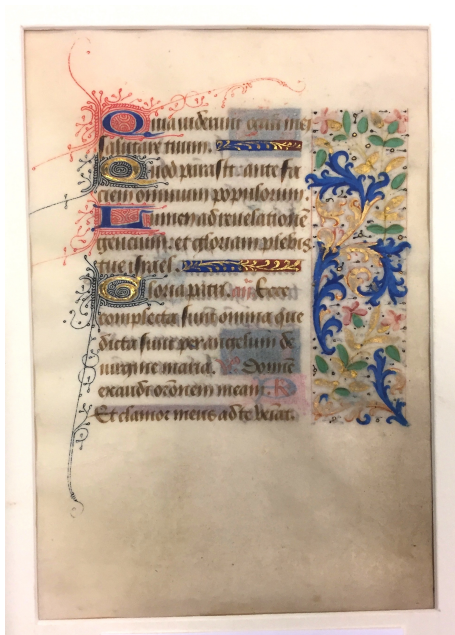 Quia viderunt oculi mei
salutare tuum.
Quod parasti: ante fa
ciem omnium populorum.
Lumen ad revelationē
gencium: et gloriam plebis
tue israel.
Gloria patri. Ecce
completa sunt omnia que
dicta sunt per angelum de
virgine maria. Domine
exaudi orōnem meam
Et clamor meus ad te veniat.